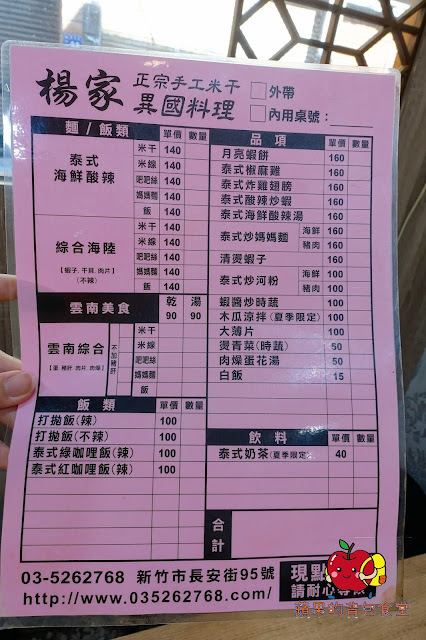 楊家 正宗手工米干
異國料理
□外帶
□內用桌號：
麵/飯類 單價 數量
泰式海鮮酸辣
米干 140
米線 140
粑粑絲 140
媽媽麵 140
飯 140
綜合海陸
【蝦子.干貝.肉片】
(不辣)
米干 140
米線 140
粑粑絲 140
媽媽麵 140
飯 140
雲南美食 乾90 湯90
雲南綜合
不加豬肝
米干
米線
粑粑絲
媽媽麵
飯
飯類 單價 數量
打拋飯(辣) 100
打拋飯(不辣) 100
泰式綠咖哩飯(辣) 100
泰式紅咖哩飯(辣) 100
品項 單價 數量
月亮蝦餅 160
泰式椒麻雞 160
泰式炸雞翅膀 160
泰式酸辣炒蝦 160
泰式海鮮酸辣湯 160
泰式炒媽媽麵 海鮮 160
豬肉 160
清燙蝦子 160
泰式炒河粉 海鮮 100
豬肉 100
蝦醬炒時蔬 100
木瓜涼拌(夏季限定) 100
大薄片 100
燙青菜(時蔬) 50
肉燥蛋花湯 50
白飯 15
飲料 單價 數量
泰式奶茶(夏季限定) 40
合計
03-5262768 新竹市長安街95號
http://www.035262768.com/
現點
請耐心
蘋果的貪吃食堂